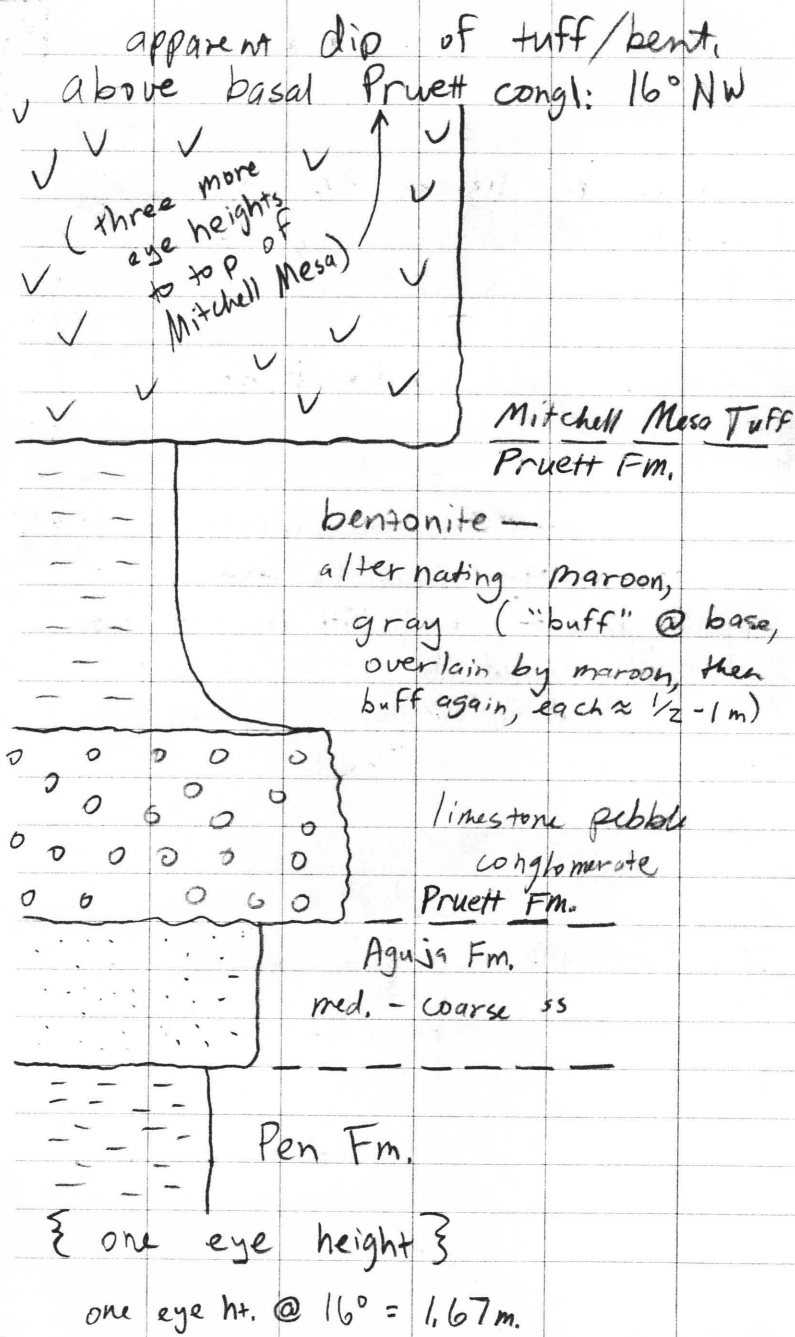 apparent dip of tuff/bent.
above basal Pruett congl: 16° NW
(three more
eye heights
to top of
Mitchell Mesa)
Mitchell Mesa Tuff
Pruett Fm.
bentonite —
alternating maroon,
gray ("buff" @ base,
overlain by maroon, then
buff again, each ≈ 1/2 - 1 m)
limestone pebble
conglomerate
Pruett Fm.
Aguja Fm.
med. - coarse ss
Pen Fm.
{ one eye height }
one eye ht. @ 16° = 1.67 m.